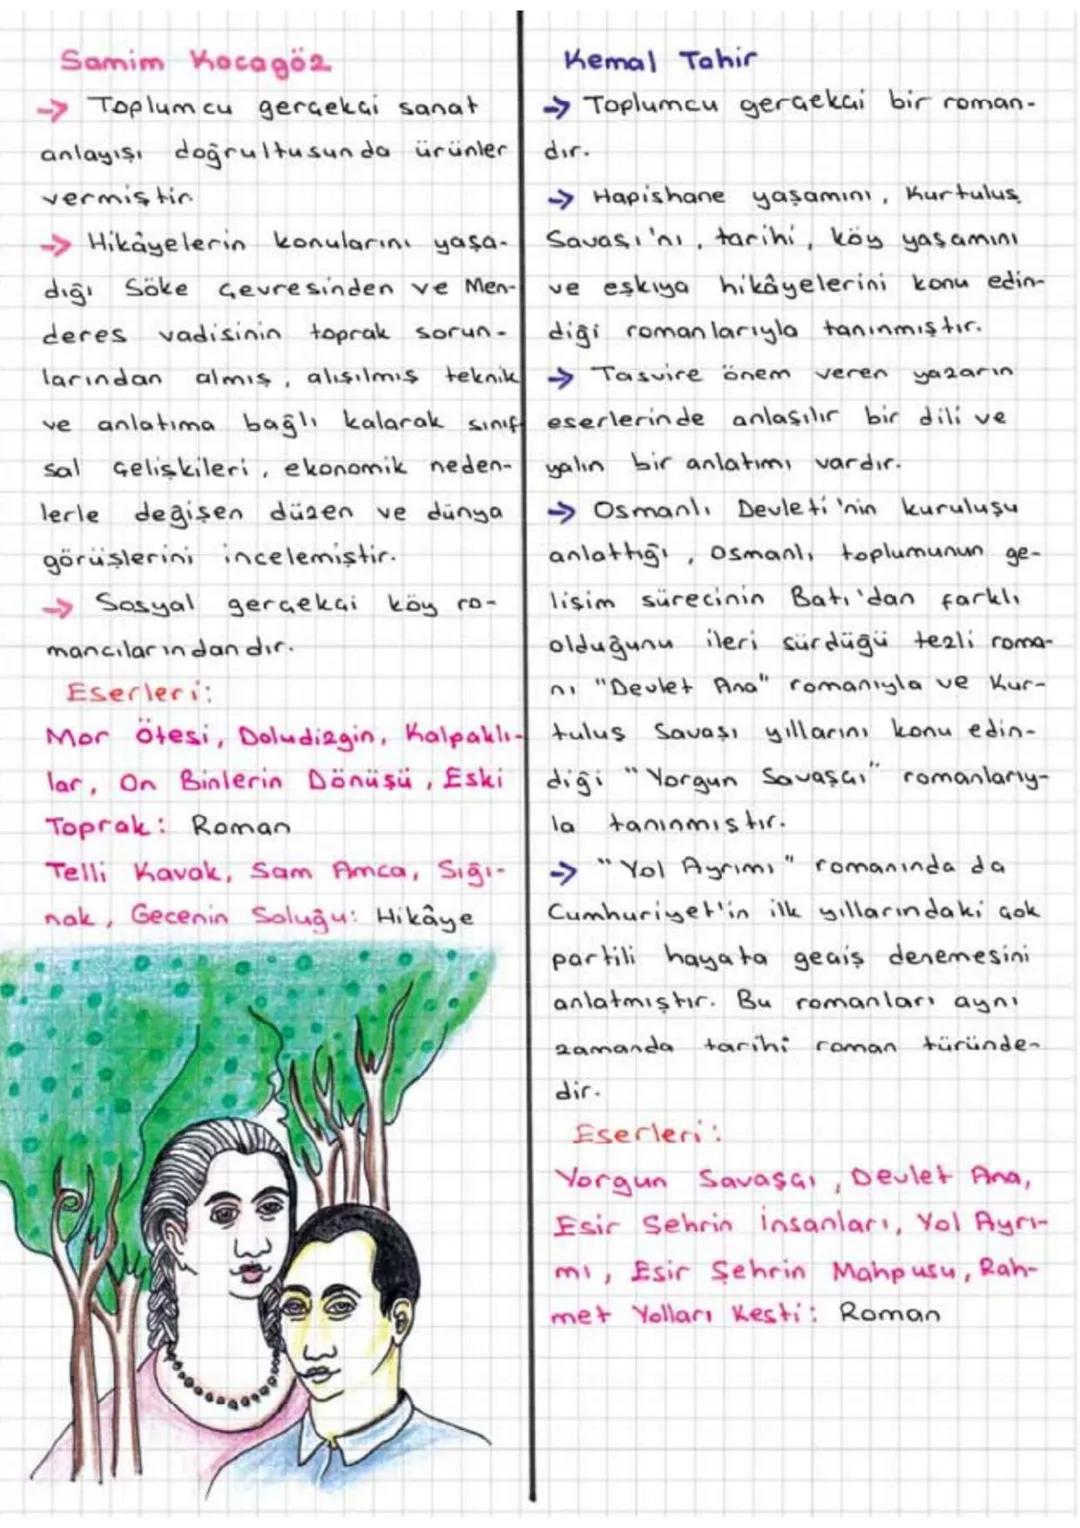 Samim Kocagöz
→ Toplumcu gerçekçi sanat
anlayışı doğrultusunda ürünler
vermiştir.
→ Hikâyelerin konularını yaşa-
dığı Söke çevresinden ve Men-
deres vadisinin toprak sorun-
larından almış, alışılmış teknik
ve anlatıma bağlı kalarak sınıf-
sal çelişkileri, ekonomik neden-
lerle değişen düzen ve dünya
görüşlerini incelemiştir.
→ Sosyal gerçekçi köy ro-
mancılarındandır.
Eserleri:
Mor Ötesi, Doludizgin, Kalpaklı-
lar, On Binlerin Dönüşü, Eski
Toprak: Roman
Telli Kavak, Sam Amca, Sığı-
nak, Gecenin Soluğu: Hikâye
Kemal Tahir
→ Toplumcu gerçekçi bir roman-
dır.
→ Hapishane yaşamını, Kurtuluş
Savaşı'nı, tarihi, köy yaşamını
ve eşkıya hikâyelerini konu edin-
diği romanlarıyla tanınmıştır.
→ Tasvire önem veren yazarın
eserlerinde anlaşılır bir dili ve
yalın bir anlatımı vardır.
→ Osmanlı Devleti'nin kuruluşu
anlattığı, Osmanlı toplumunun ge-
lişim sürecinin Batı'dan farklı
olduğunu ileri sürdüğü tezli roma-
nı "Devlet Ana" romanıyla ve Kur-
tuluş Savaşı yıllarını konu edin-
diği "Yorgun Savaşçı" romanlarıy-
la tanınmıştır.
→ "Yol Ayrımı" romanında da
Cumhuriyet'in ilk yıllarındaki çok
partili hayata geçiş denemesini
anlatmıştır. Bu romanları aynı
zamanda tarihi roman türünde-
dir.
Eserleri:
Yorgun Savaşçı, Devlet Ana,
Esir Şehrin İnsanları, Yol Ayrı-
mı, Esir Şehrin Mahpusu, Rah-
met Yolları Kesti: Roman